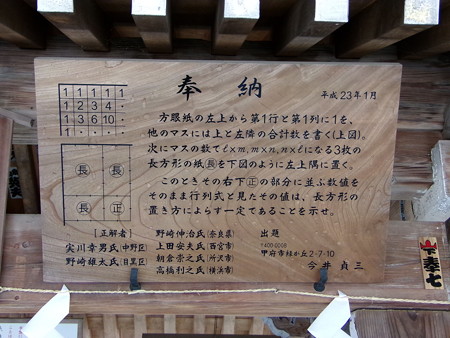 奉納
平成23年1月
1 1 1 1 1
1 2 3 4 ·
1 3 6 10 ·
1 · · · ·
方眼紙の左上から第1行と第1列に1を、
他のマスには上と左隣の合計数を書く(上図)。
次にマスの数でℓ×m,m×n,n×ℓになる3枚の
長方形の紙㊑を下図のように左上隅に置く。
このときその右下㊣の部分に並ぶ数値を
そのまま行列式と見たその値は、長方形の
置き方によらず一定であることを示せ。
長 長
長 正
[正解者]
実川幸男氏(中野区)
野崎雄太氏(目黒区)
野崎伸治氏(奈良県)
上田安夫氏(西宮市)
朝倉崇之氏(所沢市)
高橋利之氏(横浜市)
出題
〒400-0058
甲府市桂か丘2-7-10
今井貞三
奉
七